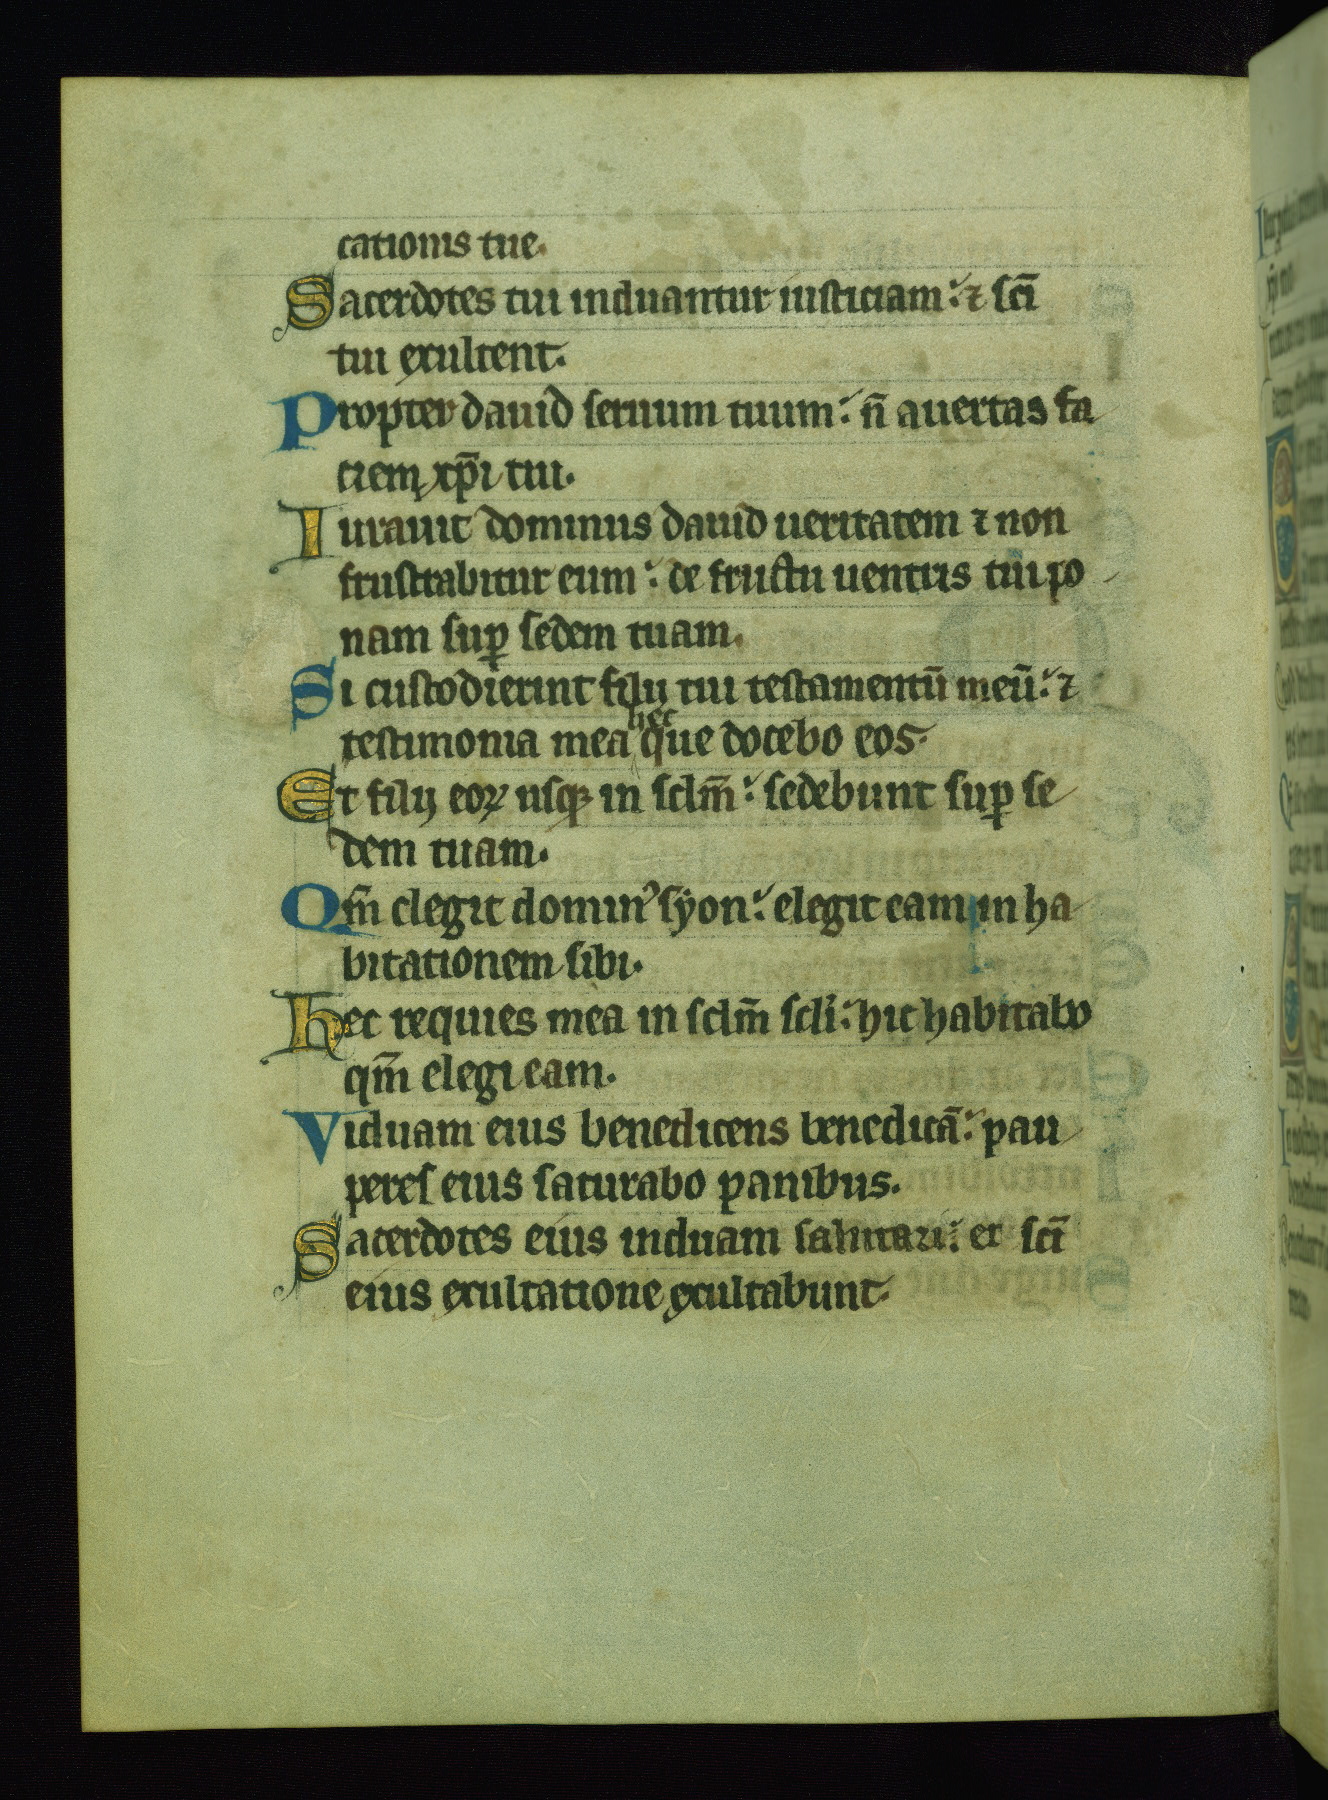 cationis tue.
Sacerdotes tui induantur iusticiam: ⁊ sc̄i
tui exultent.
Propter dauid seruum tuum: n̄ auertas fa
ciem xp̄i tui.
Iurauit dominus dauid ueritatem ⁊ non
frustrabitur eum: de fructu uentris tui po
nam suꝑ sedem tuam.
Si custodierint filij tui testamentū meū: ⁊
testimonia mea hec que docebo eos.
Et filij eoꝝ usqꝫ in sclm̄: sedebunt suꝑ se
dem tuam.
Qm̄ elegit dominꝰ syon: elegit eam in ha
bitationem sibi.
Hec requies mea in sclm̄ scli: hic habitabo
qm̄ elegi eam.
Viduam eius benedicens benedicā: pau
peres eius saturabo panibus.
Sacerdotes eius induam salutari: et sc̄i
eius exultatione exultabunt.